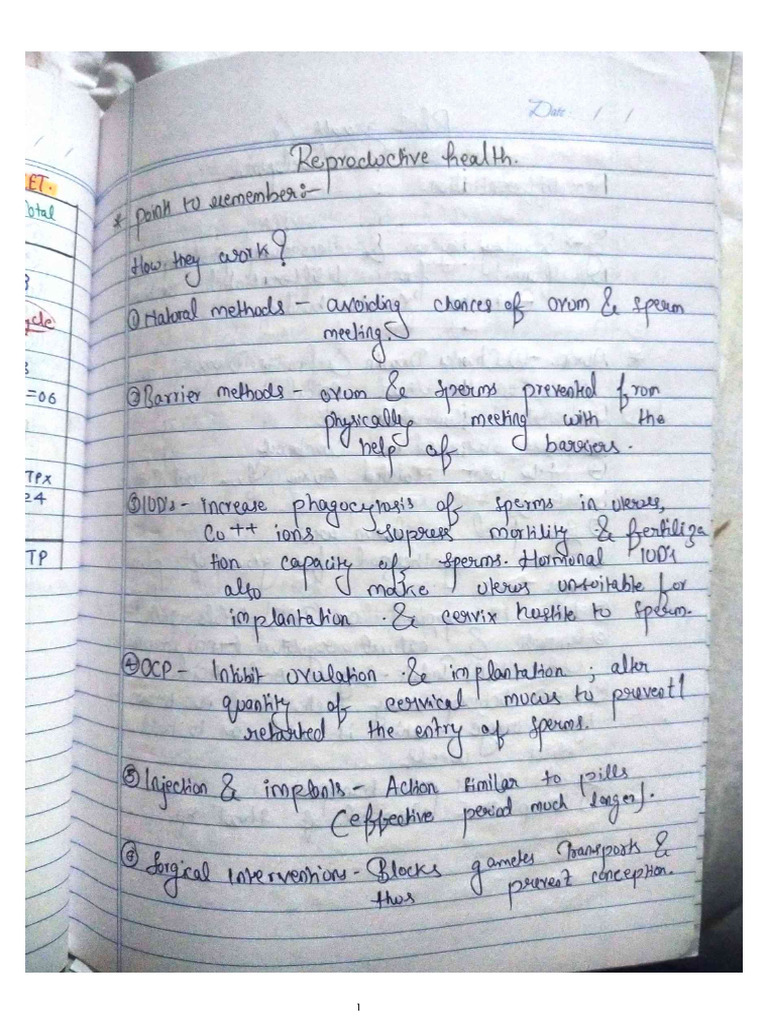 Date / /
Reproductive health.
* Point to remember:-
How they work?
① Natural methods - avoiding chances of ovum & sperm
meeting.
② Barrier methods - ovum & sperms prevented from
physically meeting with the
help of barriers.
③ IUD's - increase phagocytosis of sperms in uterus,
Cu++ ions supress mortility & fertiliza
tion capacity of sperms. Hormonal IUD's
also make uterus unsuitable for
implantation & cervix hostile to sperm.
④ OCP - Inhibit ovulation & implantation; alter
quantity of cervical mucus to prevent/
retarted the entry of sperms.
⑤ Injection & implants - Action similar to pills
(effective period much longer).
⑥ Surgical interventions - Blocks gametes transport &
thus prevent conception.
ET.
Total
=06
TPX
24
TP
1